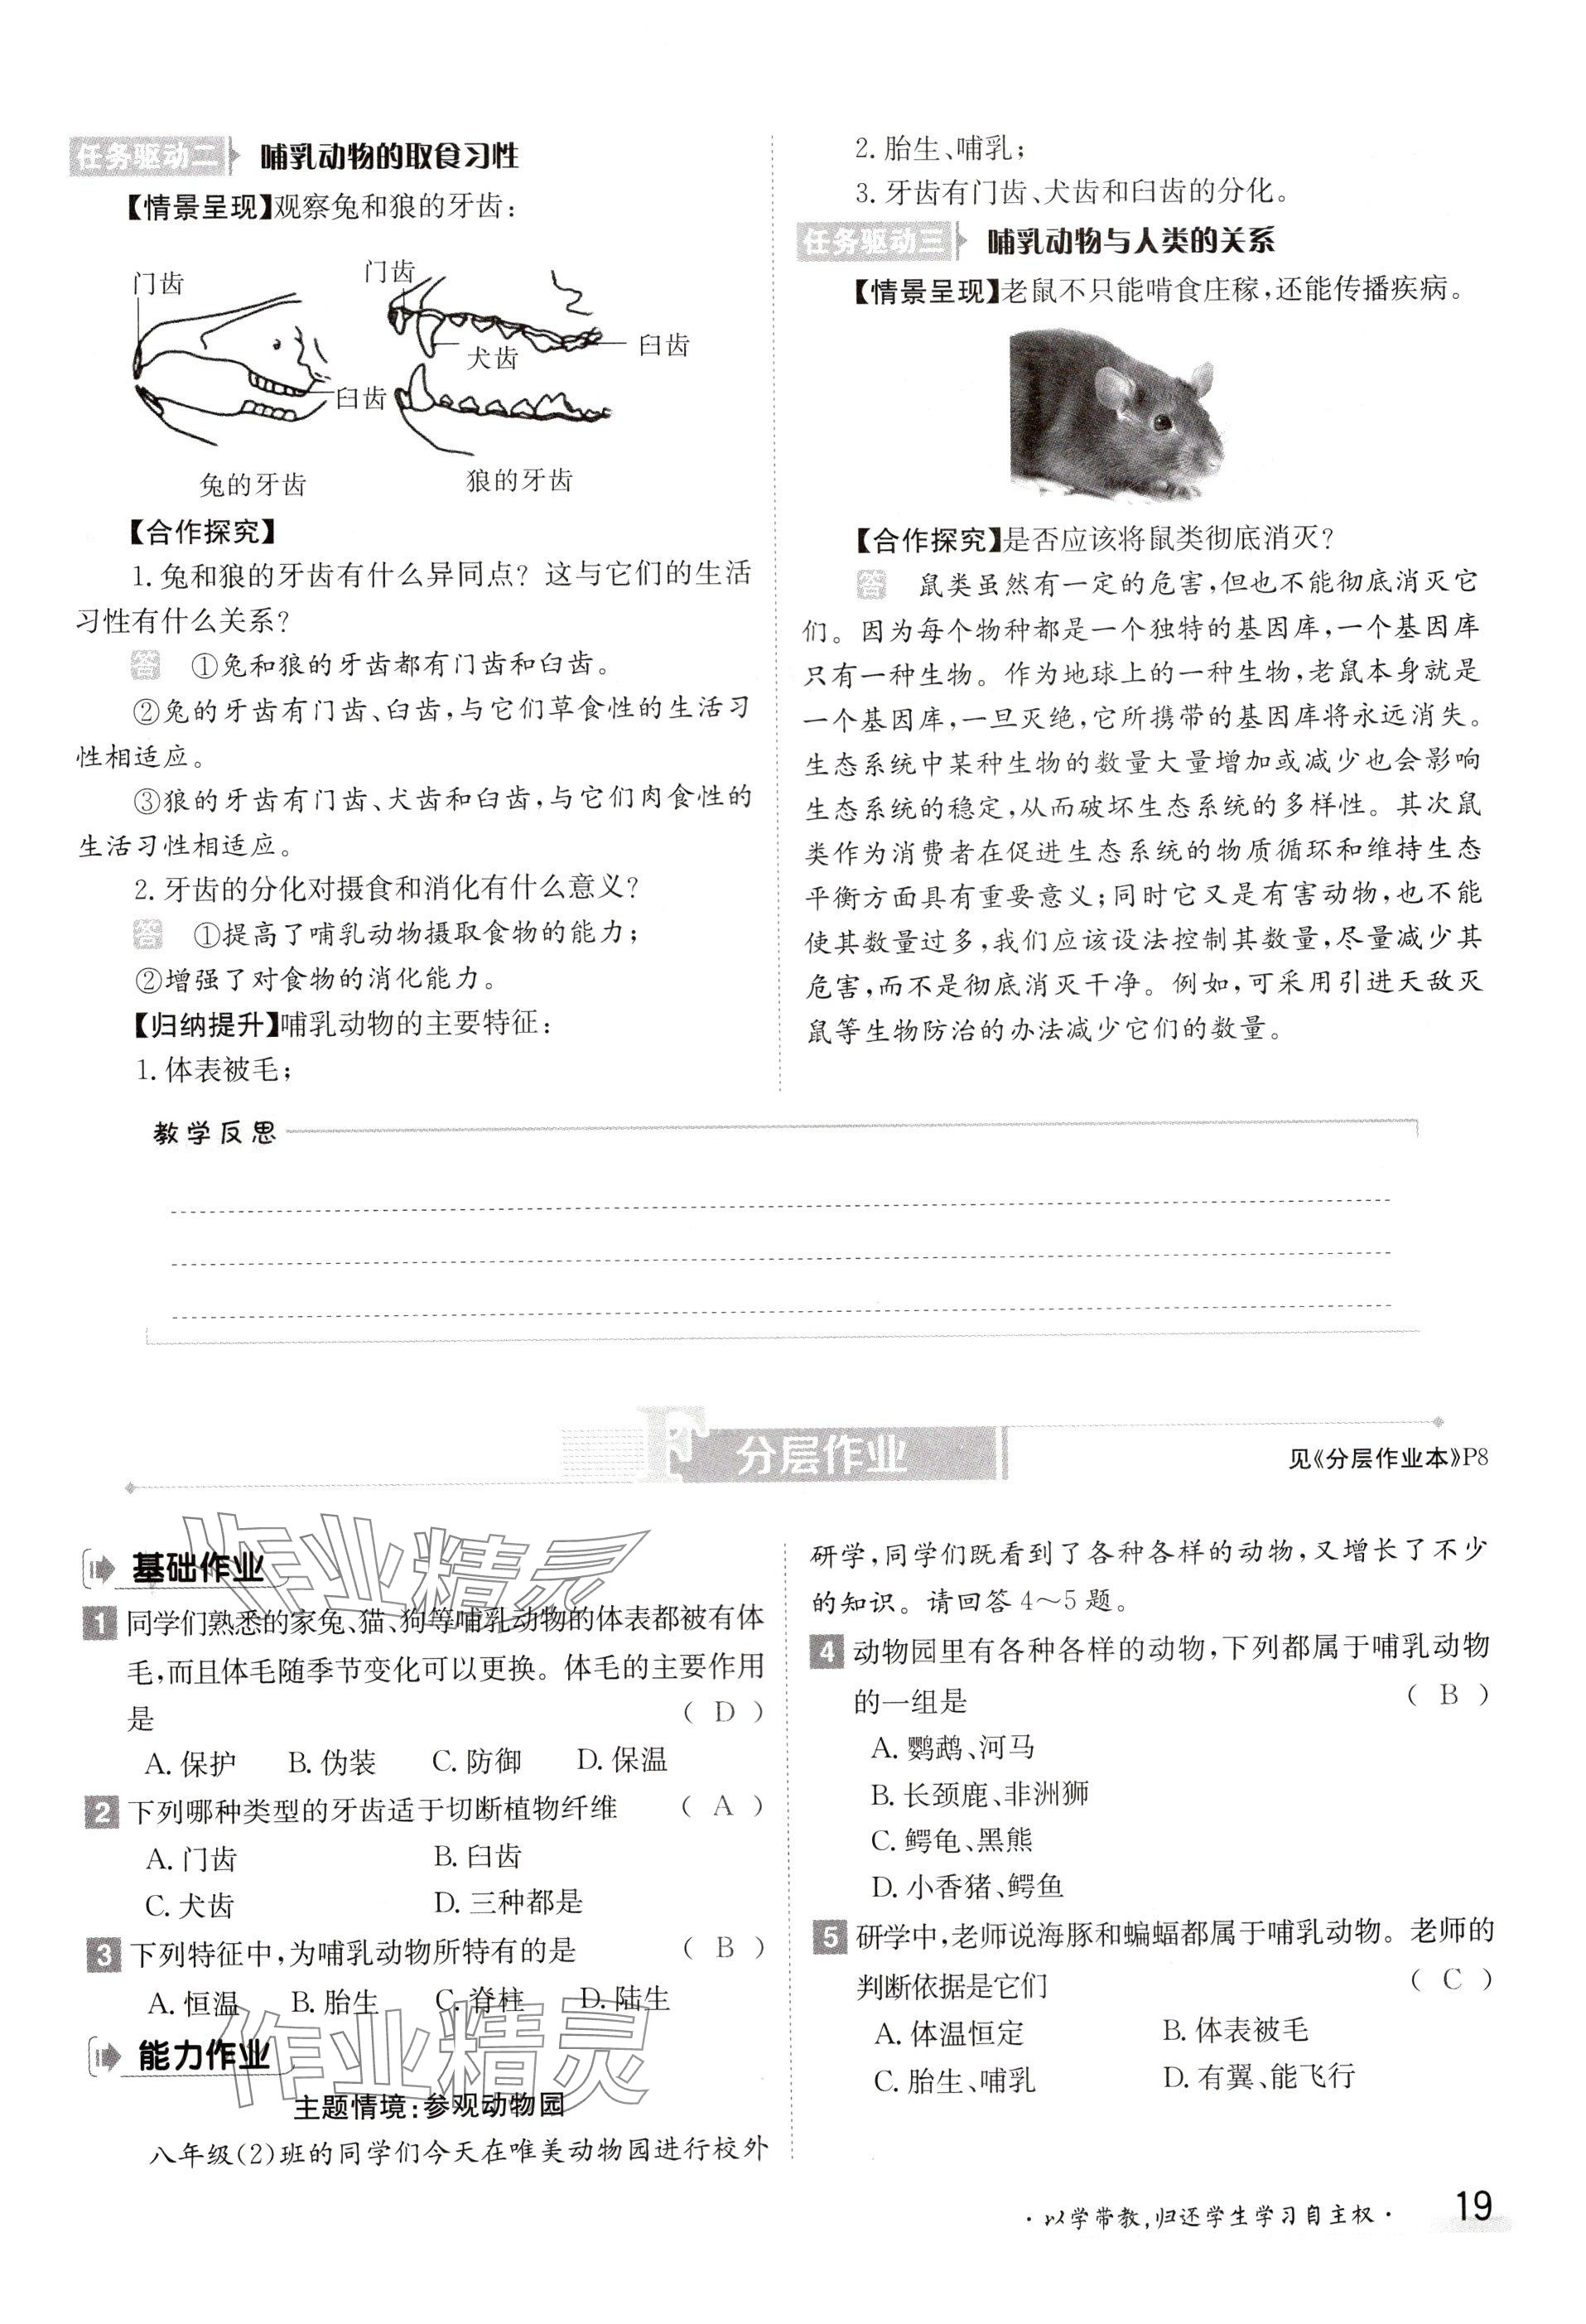 任务驱动二 哺乳动物的取食习性
【情景呈现】观察兔和狼的牙齿：
门齿
门齿
犬齿
臼齿
臼齿
兔的牙齿
狼的牙齿
【合作探究】
1. 兔和狼的牙齿有什么异同点？这与它们的生活
习性有什么关系？
答 ①兔和狼的牙齿都有门齿和臼齿。
②兔的牙齿有门齿、臼齿，与它们草食性的生活习
性相适应。
③狼的牙齿有门齿、犬齿和臼齿，与它们肉食性的
生活习性相适应。
2. 牙齿的分化对摄食和消化有什么意义？
答 ①提高了哺乳动物摄取食物的能力；
②增强了对食物的消化能力。
【归纳提升】哺乳动物的主要特征：
1. 体表被毛；
2. 胎生、哺乳；
3. 牙齿有门齿、犬齿和臼齿的分化。
任务驱动三 哺乳动物与人类的关系
【情景呈现】老鼠不只能啃食庄稼，还能传播疾病。
【合作探究】是否应该将鼠类彻底消灭？
答 鼠类虽然有一定的危害，但也不能彻底消灭它
们。因为每个物种都是一个独特的基因库，一个基因库
只有一种生物。作为地球上的一种生物，老鼠本身就是
一个基因库，一旦灭绝，它所携带的基因库将永远消失。
生态系统中某种生物的数量大量增加或减少也会影响
生态系统的稳定，从而破坏生态系统的多样性。其次鼠
类作为消费者在促进生态系统的物质循环和维持生态
平衡方面具有重要意义；同时它又是有害动物，也不能
使其数量过多，我们应该设法控制其数量，尽量减少其
危害，而不是彻底消灭干净。例如，可采用引进天敌灭
鼠等生物防治的办法减少它们的数量。
教学反思
F 分层作业
见《分层作业本》P8
基础作业
1 同学们熟悉的家兔、猫、狗等哺乳动物的体表都被有体
毛，而且体毛随季节变化可以更换。体毛的主要作用
是 （ D ）
A. 保护 B. 伪装 C. 防御 D. 保温
2 下列哪种类型的牙齿适于切断植物纤维 （ A ）
A. 门齿 B. 臼齿
C. 犬齿 D. 三种都是
3 下列特征中，为哺乳动物所特有的是 （ B ）
A. 恒温 B. 胎生 C. 脊柱 D. 陆生
能力作业
主题情境：参观动物园
八年级（2）班的同学们今天在唯美动物园进行校外
研学，同学们既看到了各种各样的动物，又增长了不少
的知识。请回答4～5题。
4 动物园里有各种各样的动物，下列都属于哺乳动物
的一组是 （ B ）
A. 鹦鹉、河马
B. 长颈鹿、非洲狮
C. 鳄龟、黑熊
D. 小香猪、鳄鱼
5 研学中，老师说海豚和蝙蝠都属于哺乳动物。老师的
判断依据是它们 （ C ）
A. 体温恒定 B. 体表被毛
C. 胎生、哺乳 D. 有翼、能飞行
作业精灵
作业精灵
· 以学带教，归还学生学习自主权 · 19